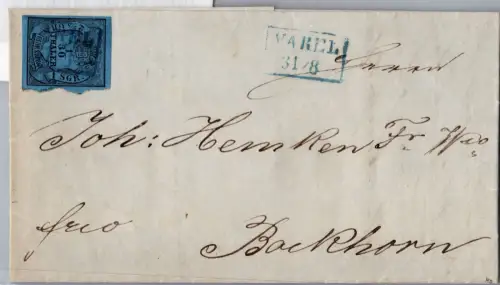 1/30
THALER
1 SGR.
VAREL
31/8
Herrn
Joh: Hemken Fr. Wwe
frco
Bockhorn